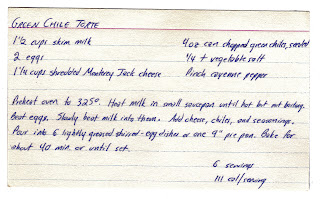 Green Chile Torte
1 1/2 cups skim milk
2 eggs
1 1/4 cups shredded Monterey Jack cheese
4 oz can chopped green chiles, seeded
1/4 t vegetable salt
Pinch cayenne pepper
Preheat oven to 325°. Heat milk in small saucepan until hot but not boiling.
Beat eggs. Slowly beat milk into them. Add cheese, chiles, and seasonings.
Pour into 6 lightly greased shirred-egg dishes or one 9" pie pan. Bake for
about 40 min. or until set.
6 servings
111 cal/serving